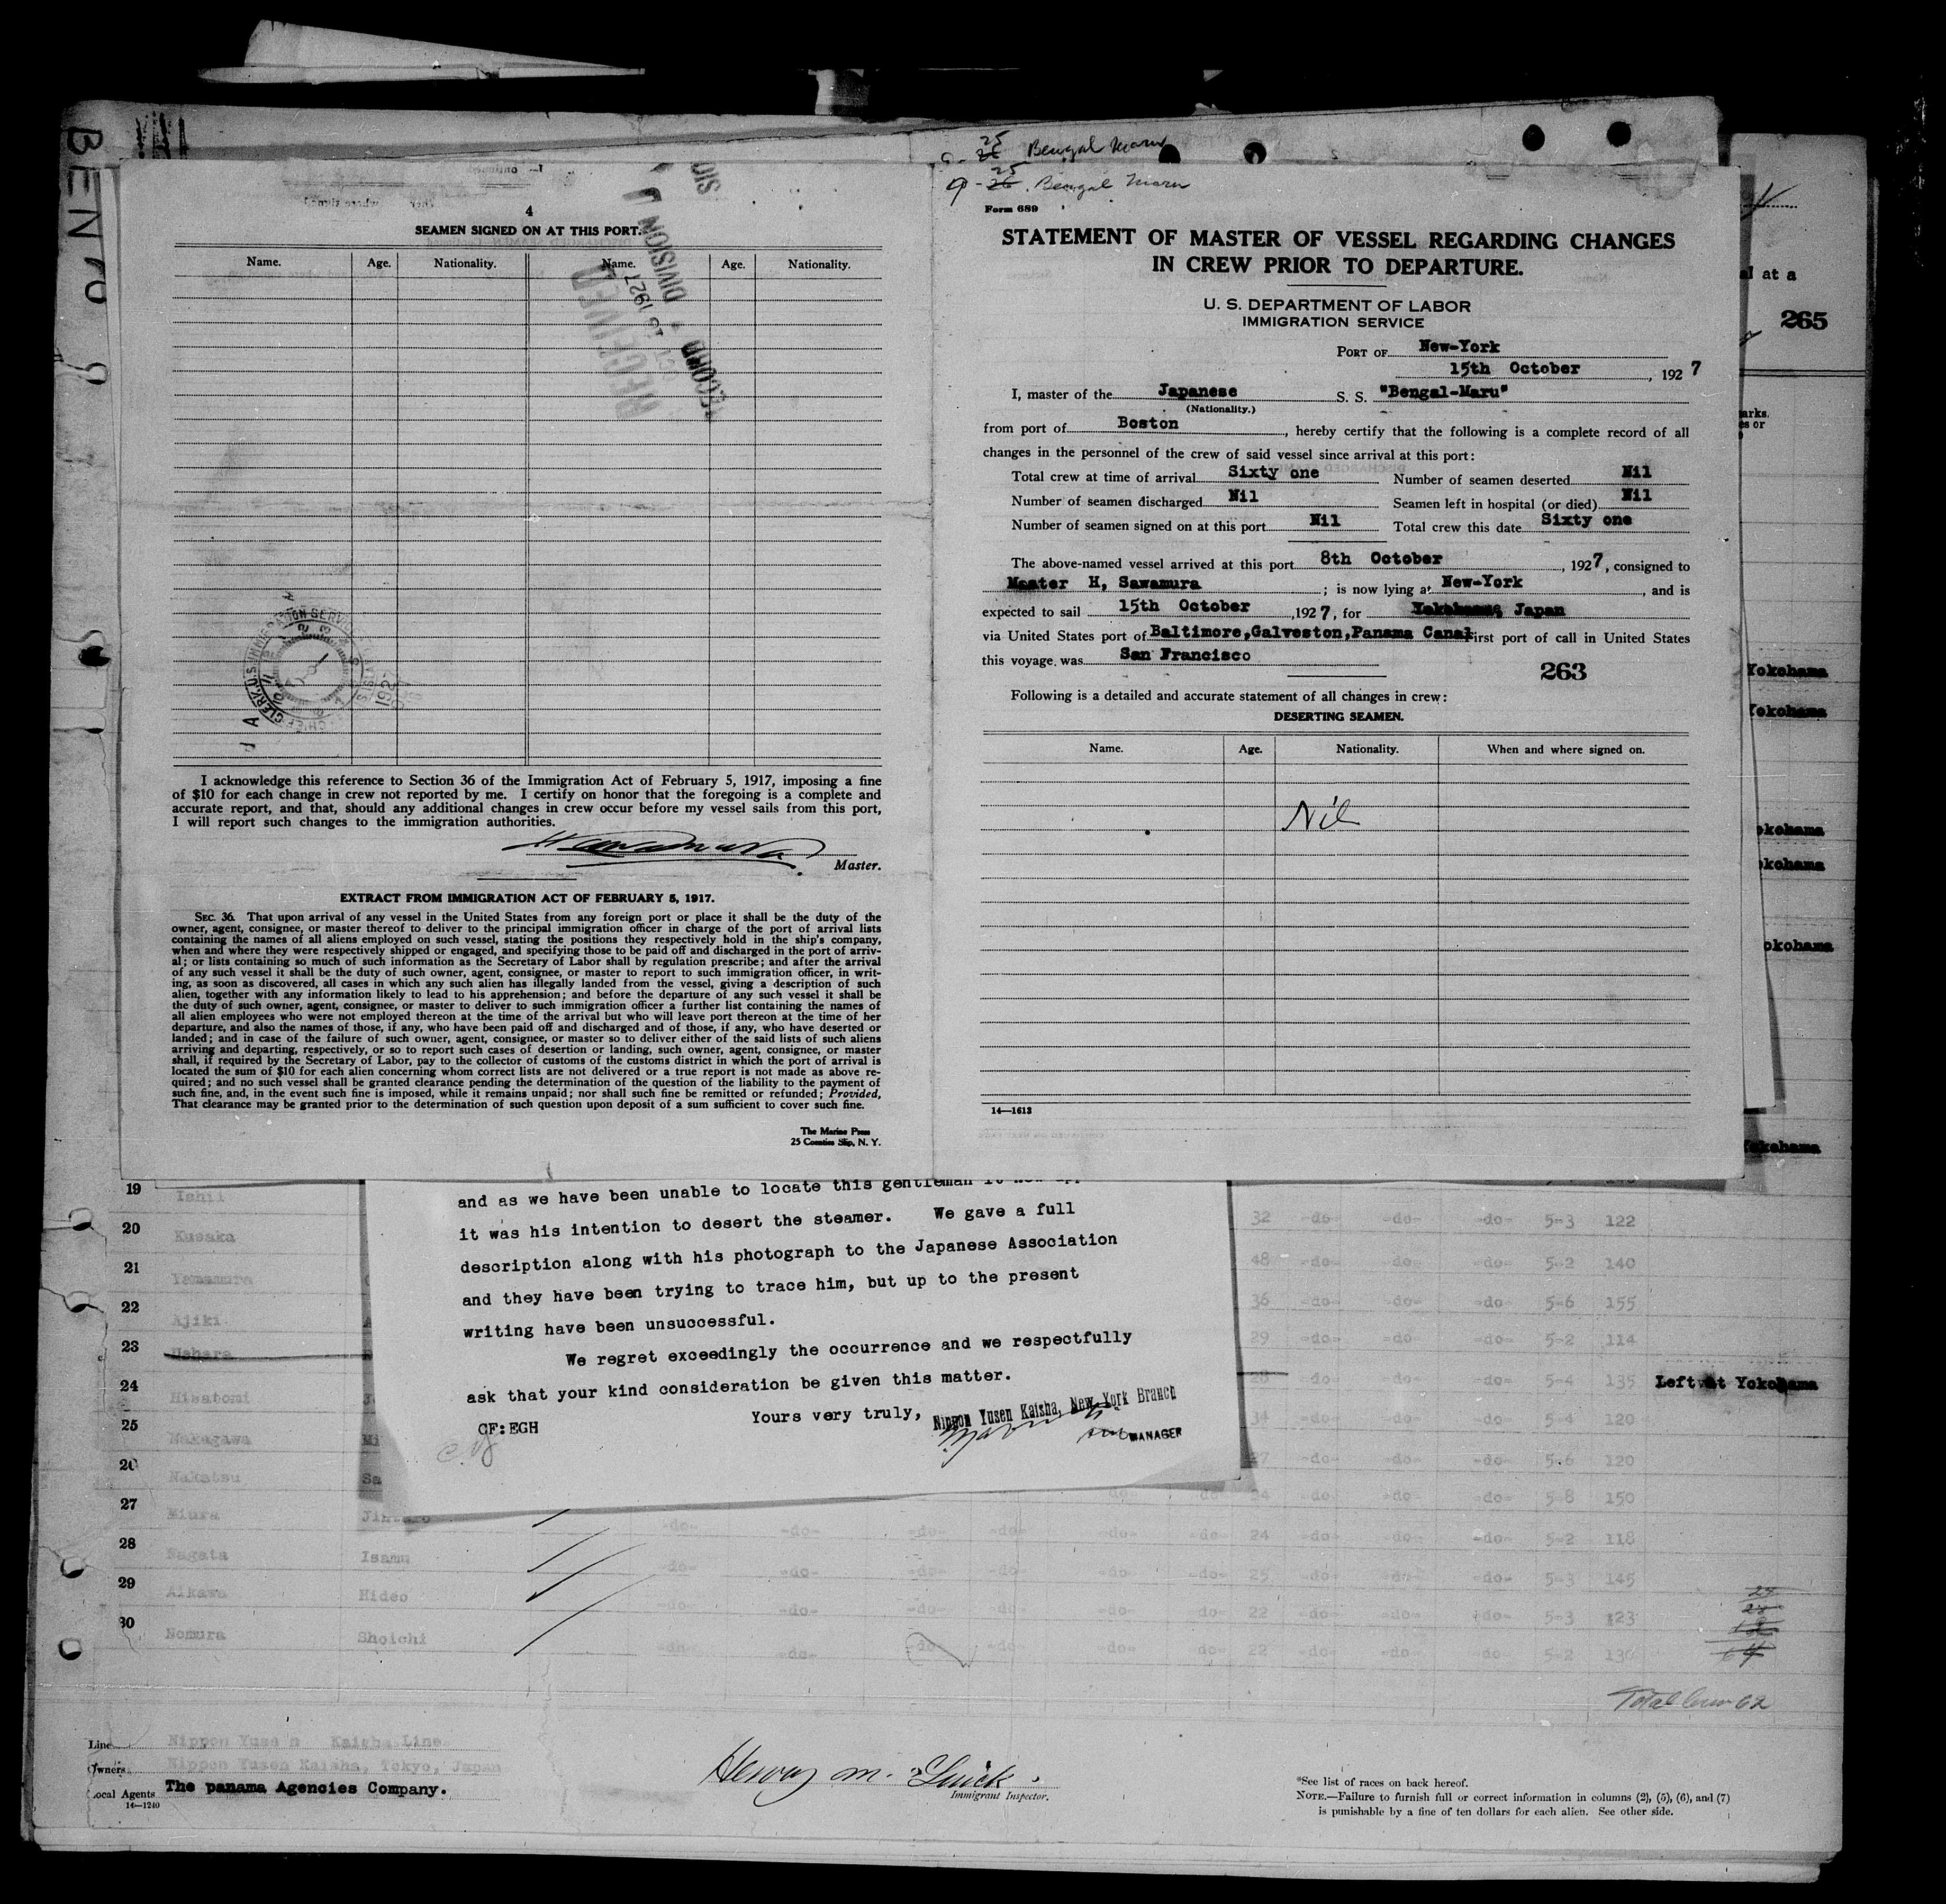 BENTO
25
26 Bengal Maru
25
9 - 26. Bengal Maru
4
SEAMEN SIGNED ON AT THIS PORT.
Name. Age. Nationality. Name. Age. Nationality.
RECEIVED
1927
RECORD DIVISION
I acknowledge this reference to Section 36 of the Immigration Act of February 5, 1917, imposing a fine
of $10 for each change in crew not reported by me. I certify on honor that the foregoing is a complete and
accurate report, and that, should any additional changes in crew occur before my vessel sails from this port,
I will report such changes to the immigration authorities.
Master.
EXTRACT FROM IMMIGRATION ACT OF FEBRUARY 5, 1917.
SEC. 36. That upon arrival of any vessel in the United States from any foreign port or place it shall be the duty of the
owner, agent, consignee, or master thereof to deliver to the principal immigration officer in charge of the port of arrival lists
containing the names of all aliens employed on such vessel, stating the positions they respectively hold in the ship's company,
when and where they were respectively shipped or engaged, and specifying those to be paid off and discharged in the port of arriv-
al; or lists containing so much of such information as the Secretary of Labor shall by regulation prescribe; and after the arrival
of any such vessel it shall be the duty of such owner, agent, consignee, or master to report to such immigration officer, in writ-
ing, as soon as discovered, all cases in which any such alien has illegally landed from the vessel, giving a description of such
alien, together with any information likely to lead to his apprehension; and before the departure of any such vessel it shall be
the duty of such owner, agent, consignee, or master to deliver to such immigration officer a further list containing the names of
all alien employees who were not employed thereon at the time of the arrival but who will leave port thereon at the time of her
departure, and also the names of those, if any, who have been paid off and discharged and of those, if any, who have deserted or
landed; and in case of the failure of such owner, agent, consignee, or master so to deliver either of the said lists of such aliens
arriving and departing, respectively, or so to report such cases of desertion or landing, such owner, agent, consignee, or master
shall, if required by the Secretary of Labor, pay to the collector of customs of the customs district in which the port of arrival is
located the sum of $10 for each alien concerning whom correct lists are not delivered or a true report is not made as above re-
quired; and no such vessel shall be granted clearance pending the determination of the question of the liability to the payment of
such fine, and, in the event such fine is imposed, while it remains unpaid; nor shall such fine be remitted or refunded; Provided,
That clearance may be granted prior to the determination of such question upon deposit of a sum sufficient to cover such fine.
The Marine Press
25 Coenties Slip, N. Y.
Form 689
STATEMENT OF MASTER OF VESSEL REGARDING CHANGES
IN CREW PRIOR TO DEPARTURE.
U. S. DEPARTMENT OF LABOR
IMMIGRATION SERVICE
PORT OF New-York
15th October, 1927
I, master of the Japanese S. S. "Bengal-Maru"
(Nationality.)
from port of Boston, hereby certify that the following is a complete record of all
changes in the personnel of the crew of said vessel since arrival at this port:
Total crew at time of arrival Sixty one Number of seamen deserted Nil
Number of seamen discharged Nil Seamen left in hospital (or died) Nil
Number of seamen signed on at this port Nil Total crew this date Sixty one
The above-named vessel arrived at this port 8th October, 1927, consigned to
Master H, Sawamura; is now lying at New-York, and is
expected to sail 15th October, 1927, for Yokohama Japan
via United States port of Baltimore,Galveston,Panama Canal First port of call in United States
this voyage was San Francisco
263
Following is a detailed and accurate statement of all changes in crew:
DESERTING SEAMEN.
Name. Age. Nationality. When and where signed on.
Nil
14—1613
al at a
265
arks.
es or
Yokohama
Yokohama
okohama
okohama
okohama
Yokohama
and as we have been unable to locate this gentleman it now
it was his intention to desert the steamer. We gave a full
description along with his photograph to the Japanese Association
and they have been trying to trace him, but up to the present
writing have been unsuccessful.
We regret exceedingly the occurrence and we respectfully
ask that your kind consideration be given this matter.
Yours very truly,
Nippon Yusen Kaisha, New York Branch
MANAGER
CF:EGH
19 Ishii
20 Kusaka 32 -do- -do- -do- 5-3 122
21 Yamamura 48 -do- -do- -do- 5-2 140
22 Ajiki 36 -do- -do- -do- 5-6 155
23 Uehara 29 -do- -do- -do- 5-2 114
24 Hisatomi -do- -do- -do- 5-4 135 Left at Yokohama
25 Nakagawa Mi 34 -do- -do- -do- 5-4 120
26 Nakatsu Sa 27 -do- -do- -do- 5-6 120
27 Miura 24 -do- -do- -do- 5-8 150
28 Nagata Isamu -do- -do- -do- -do- -do- do 24 -do- -do- -do- 5-2 118
29 Aikawa Hideo -do- -do- -do- -do- -do- do 25 -do- -do- -do- 5-3 145
30 Nomura Shoichi -do- -do- -do- -do- -do- do 22 -do- -do- -do- 5-3 123
-do- -do- -do- -do- -do- do 22 -do- -do- -do- 5-2
Total Crew 62
Line Nippon Yusen Kaisha Line
Owners Nippon Yusen Kaisha, Tokyo, Japan
Local Agents The panama Agencies Company.
14—1240
Immigrant Inspector.
*See list of races on back hereof.
NOTE.—Failure to furnish full or correct information in columns (2), (5), (6), and (7)
is punishable by a fine of ten dollars for each alien. See other side.